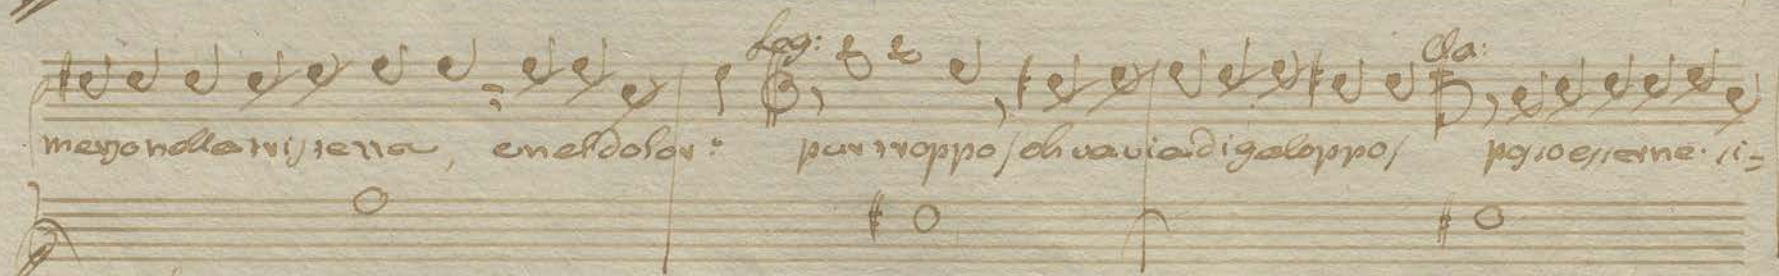 Leg: Cla:
merso nella tristezza, e nel dolor: pur troppo/ oh va via di galoppo/ posso esserne si=